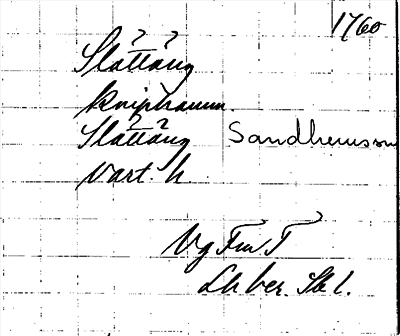 1760
Slättäng
Kniphamm.
Slättäng Sandhemssn
Vart. h.
Vg Fm T
Lh ber. Skl.